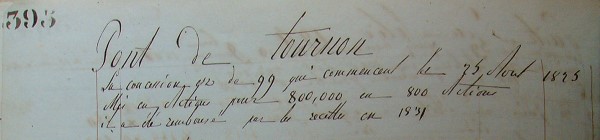 395
Pont de Tournon
La concession est de 99 qui commencent le 25 Aout 1825
Mis en Actions pour 800,000 en 800 Actions
il a été remboursé par les recettes en 1831